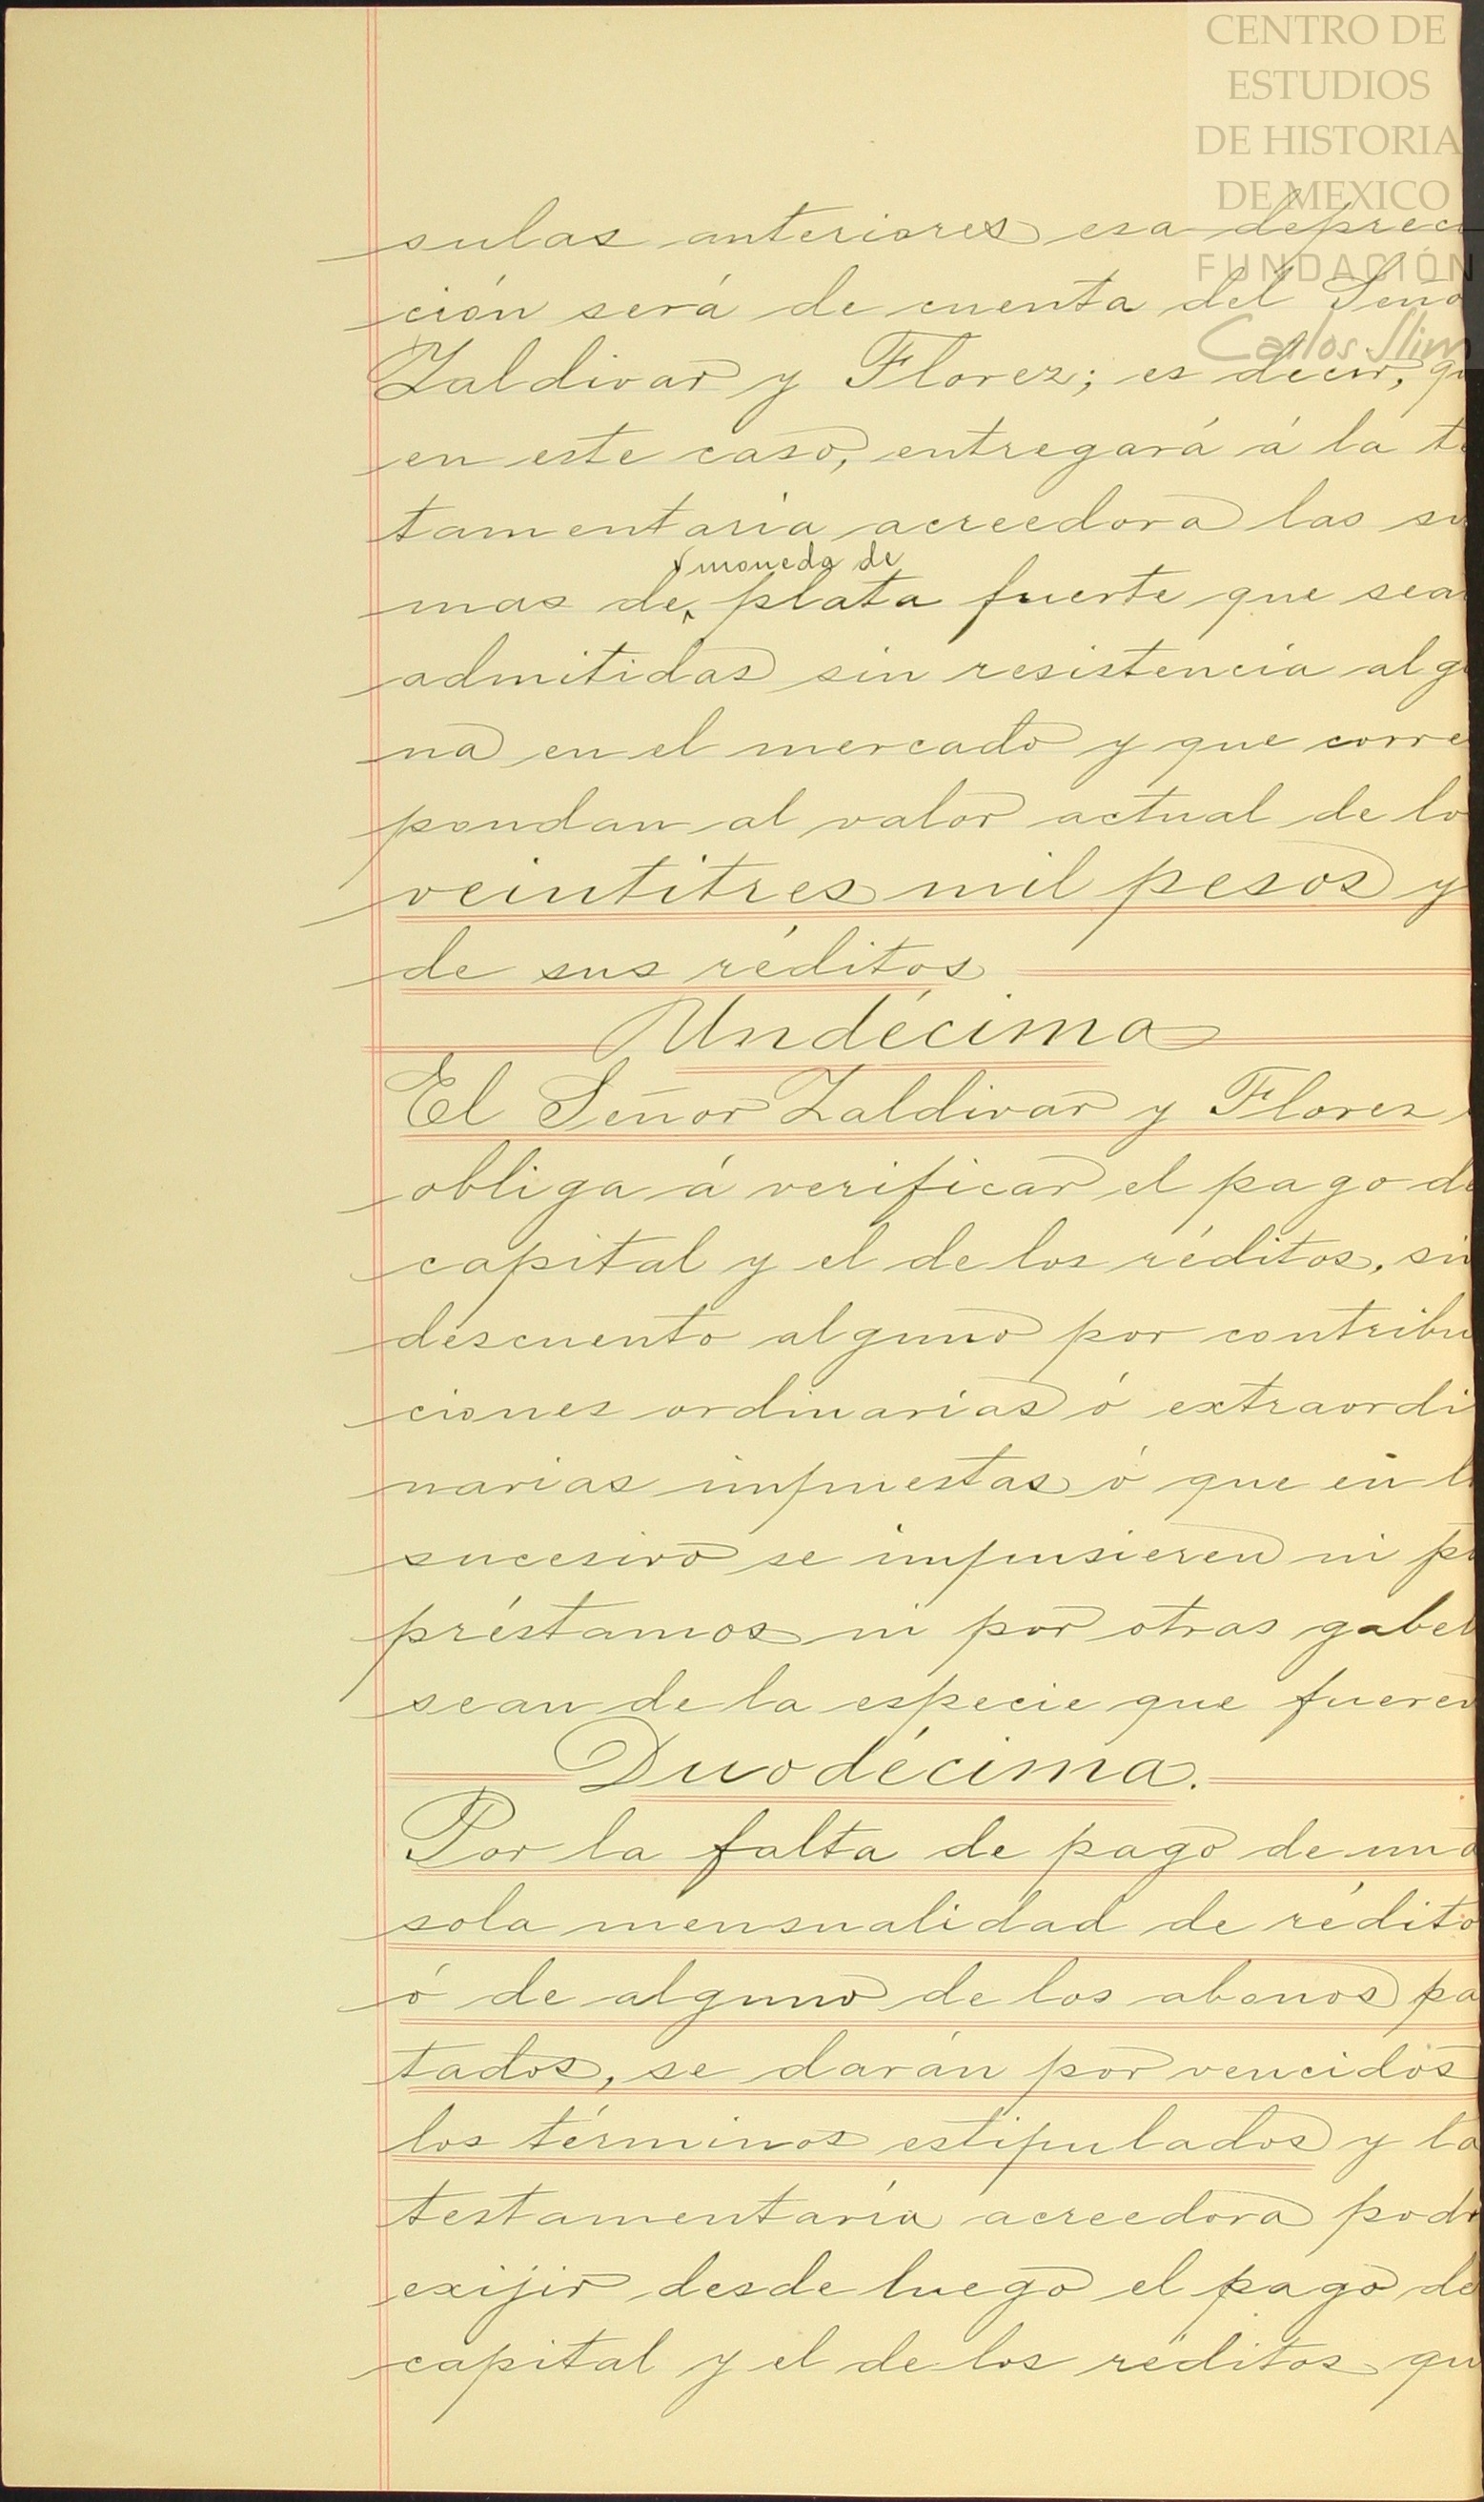 CENTRO DE
ESTUDIOS
DE HISTORIA
DE MEXICO
FUNDACIÓN
Carlos Slim
sulas anteriores esa depreci
ción será de cuenta del Seño
Zaldivar y Florez; es decir, qu
en este caso, entregará á la te
tamentaría acreedora las su
moneda de
mas de plata fuerte que sean
admitidas sin resistencia algu
na en el mercado y que corres
pondan al valor actual de lo
veintitres mil pesos y
de sus réditos
Undécima
El Señor Zaldivar y Florez
obliga á verificar el pago de
capital y el de los réditos, sin
descuento alguno por contribu
ciones ordinarias ó extraordi
narias impuestas ó que en l
sucesivo se impusieren ni po
préstamos ni por otras gabel
sean de la especie que fueren
Duodécima.
Por la falta de pago de una
sola mensualidad de rédito
ó de alguno de los abonos pa
tados, se darán por vencidos
los términos estipulados y la
testamentaría acreedora podr
exijir desde luego el pago de
capital y el de los réditos qu